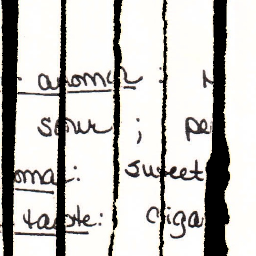 aroma :
sour ; pe
oma: sweet
taste: Ciga